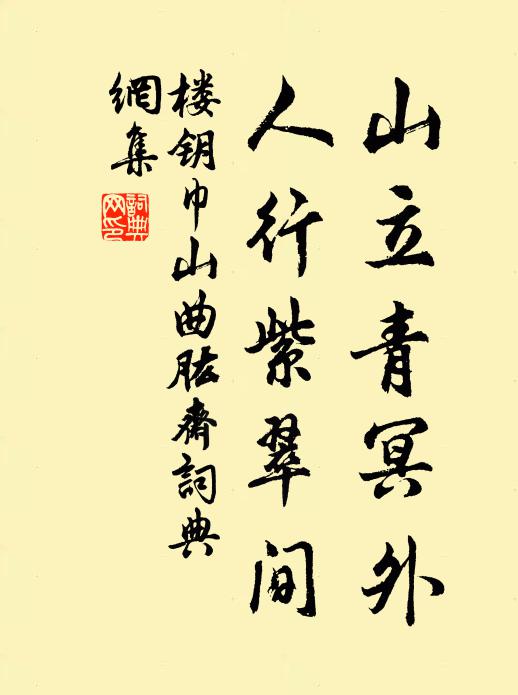 山立青冥外
人行紫翠间
楼钥巾山曲肱斋詞典
網集
詞典网印